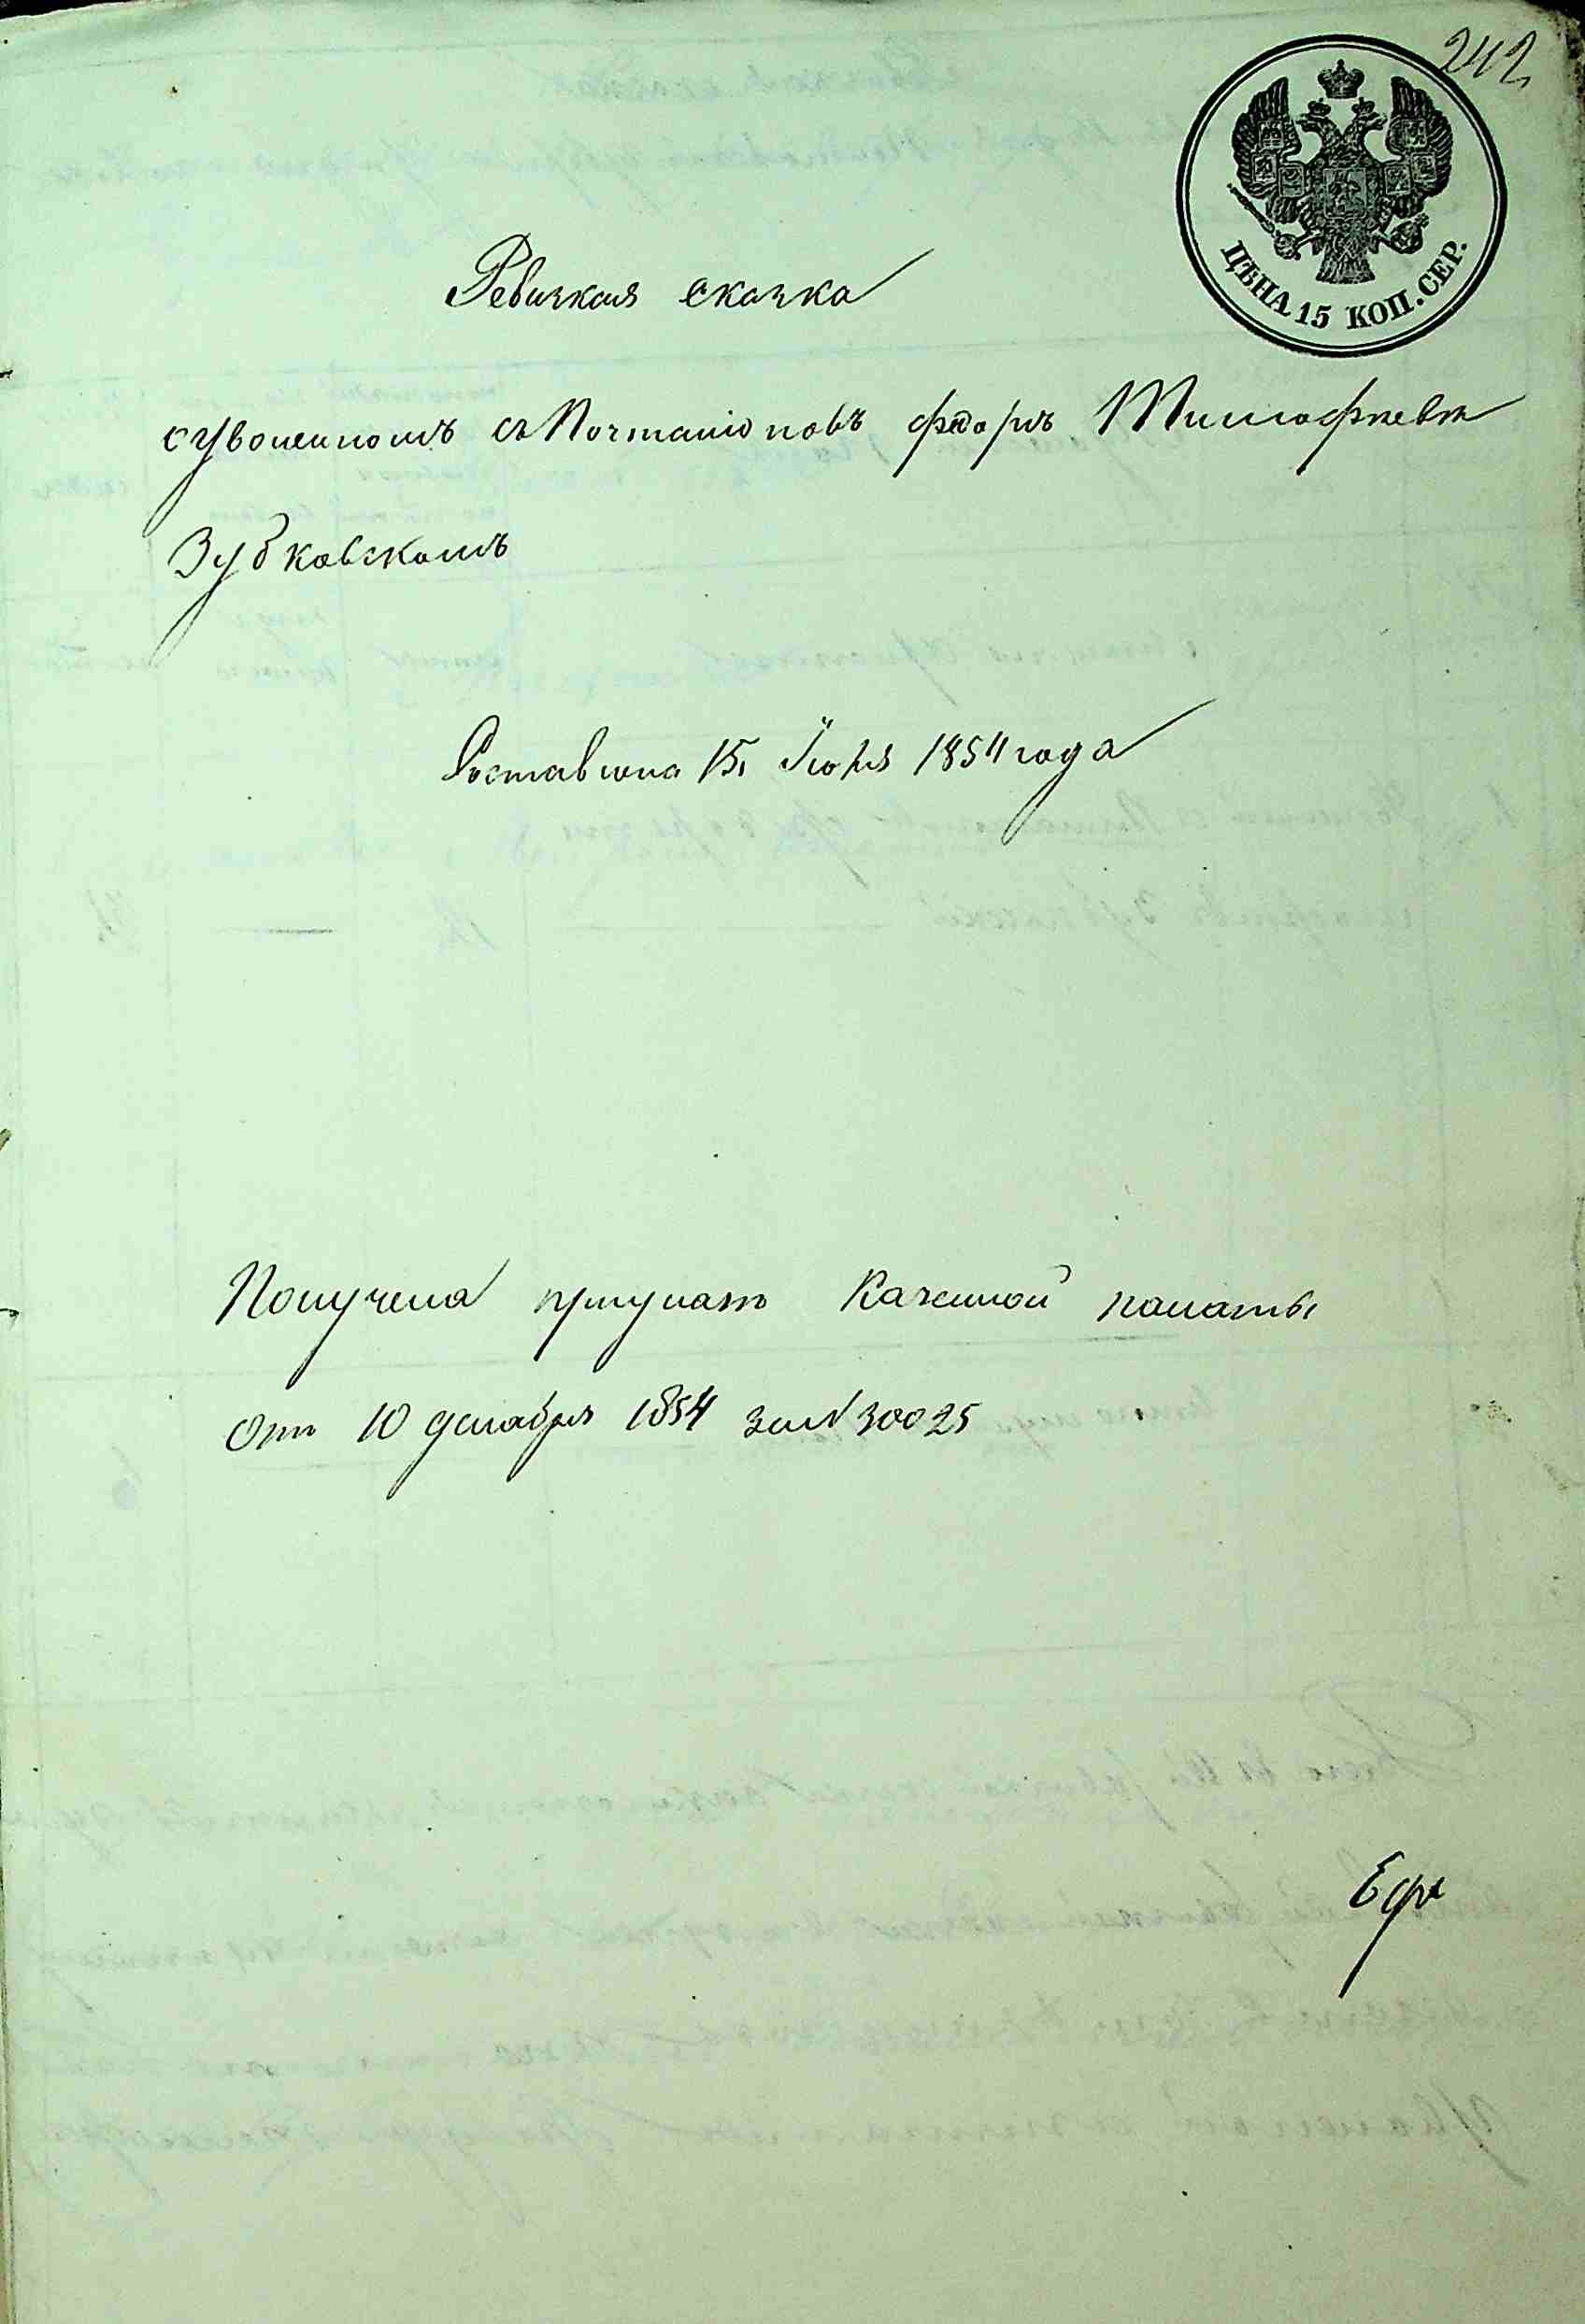 242
ЦѢНА 15 КОП. СЕР.
Ревизкая сказка
оуволенномъ съ Почталионовъ Федоръ Тимофѣевѣ
Зубковскомъ
Составлена 15 Іюня 1854 года
Получена при указѣ Казенной палаты
Отъ 10 декабря 1854 за № 30025